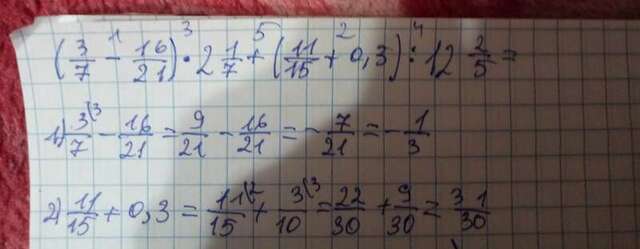 (3/7 - 16/21) · 2 1/7 + (11/15 + 0,3) : 12 2/5 =
1) 3/7 - 16/21 = 9/21 - 16/21 = - 7/21 = - 1/3
2) 11/15 + 0,3 = 11/15 + 3/10 = 22/30 + 9/30 = 31/30